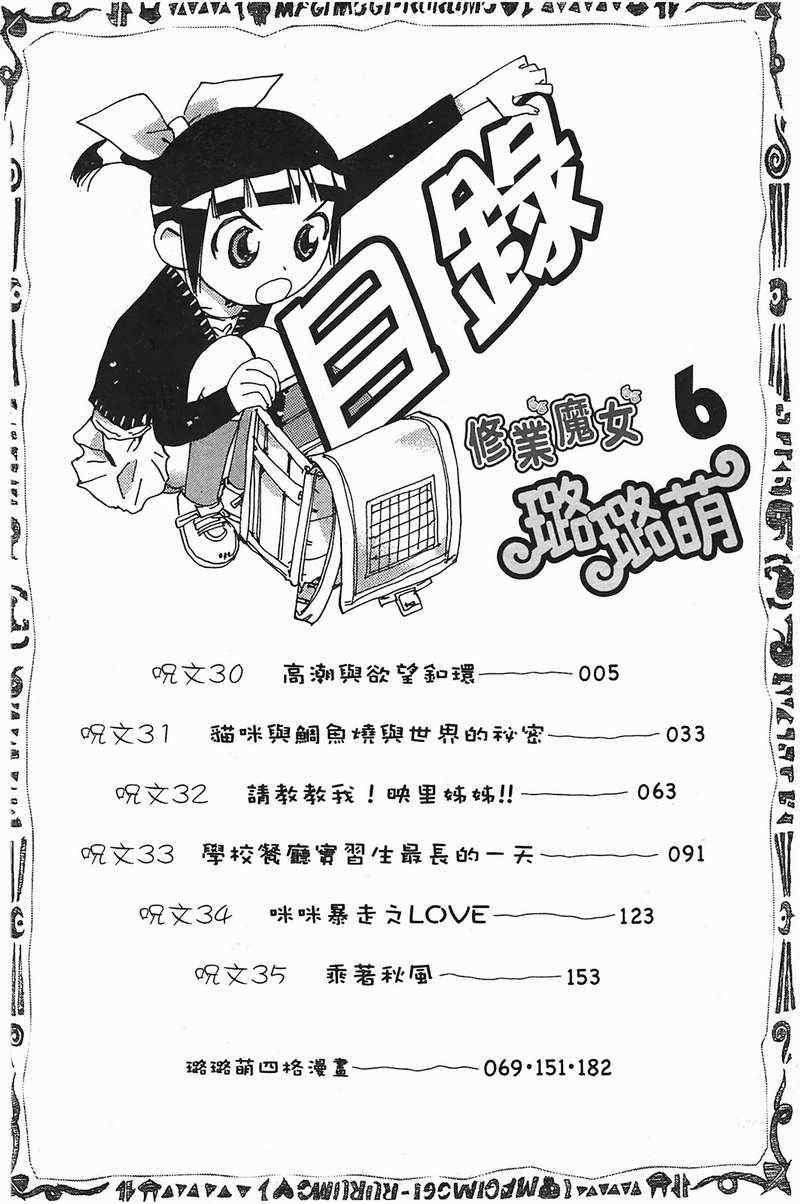 目錄
修業魔女 6
璐璐萌
呪文30 高潮與欲望釦環 005
呪文31 貓咪與鯛魚燒與世界的秘密 033
呪文32 請教教我！映里姊姊!! 063
呪文33 學校餐廳實習生最長的一天 091
呪文34 咪咪暴走之LOVE 123
呪文35 乘著秋風 153
璐璐萌四格漫畫 069･151･182